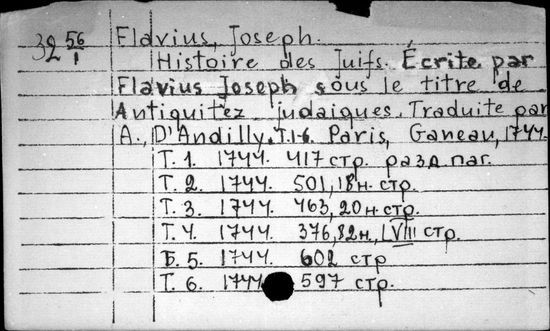 32 56/1
Flavius, Joseph.
Histoire des Juifs. Écrite par
Flavius Joseph sous le titre de
Antiquitez judaiques. Traduite par
A., D'Andilly. T.1-6. Paris, Ganeau, 1744.
T. 1. 1744. 417 стр. разд. паг.
T. 2. 1744. 501, 18 н. стр.
T. 3. 1744. 463, 20 н. стр.
T. 4. 1744. 376, 82 н., LVIII стр.
Б. 5. 1744. 602 стр
T. 6. 1744 597 стр.